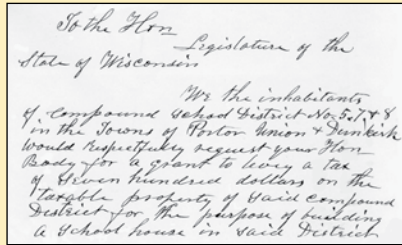 To the Hon
Legislature of the
State of Wisconsin
We the inhabitants
of compound School District No. 5, 7 & 8
in the Towns of Porter Union & Dunkirk
would respectfully request your Hon
Body for a grant to levy a tax
of Seven hundred dollars on the
taxable property of said compound
District for the purpose of building
a School house in said District